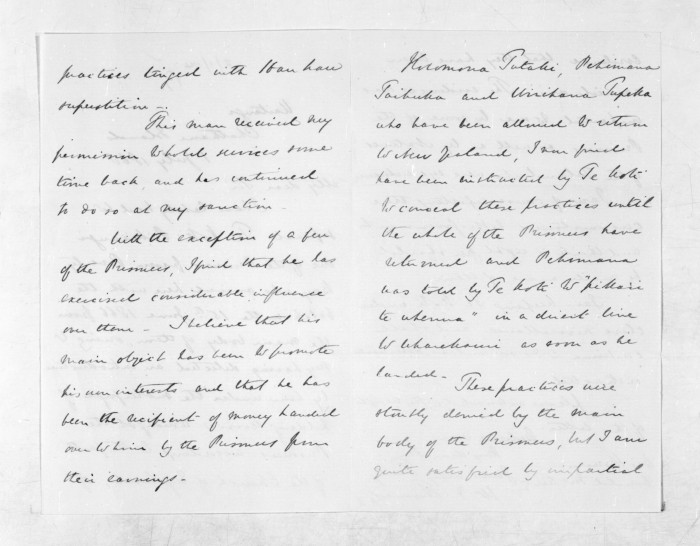 practices tinged with Hau hau
superstition —
This man received my
permission to hold services some
time back, and has continued
to do so at my sanction.
With the exception of a few
of the Prisoners, I find that he has
exercised considerable influence
over them — I believe that his
main object has been to promote
his own interests and that he has
been the recipient of money handed
over to him by the Prisoners from
their earnings —
Horomona Tutaki, Pehimana
Taihuka and Wirihana Tupeka
who have been allowed to return
to New Zealand, I now find
have been instructed by Te Koti
to conceal these practices until
the whole of the Prisoners have
returned and Pehimana
was told by Te Koti to "pikari
te whenua" in a direct line
to Wharekauri as soon as he
landed —
These practices were
stoutly denied by the main
body of the Prisoners, but I am
quite satisfied by impartial